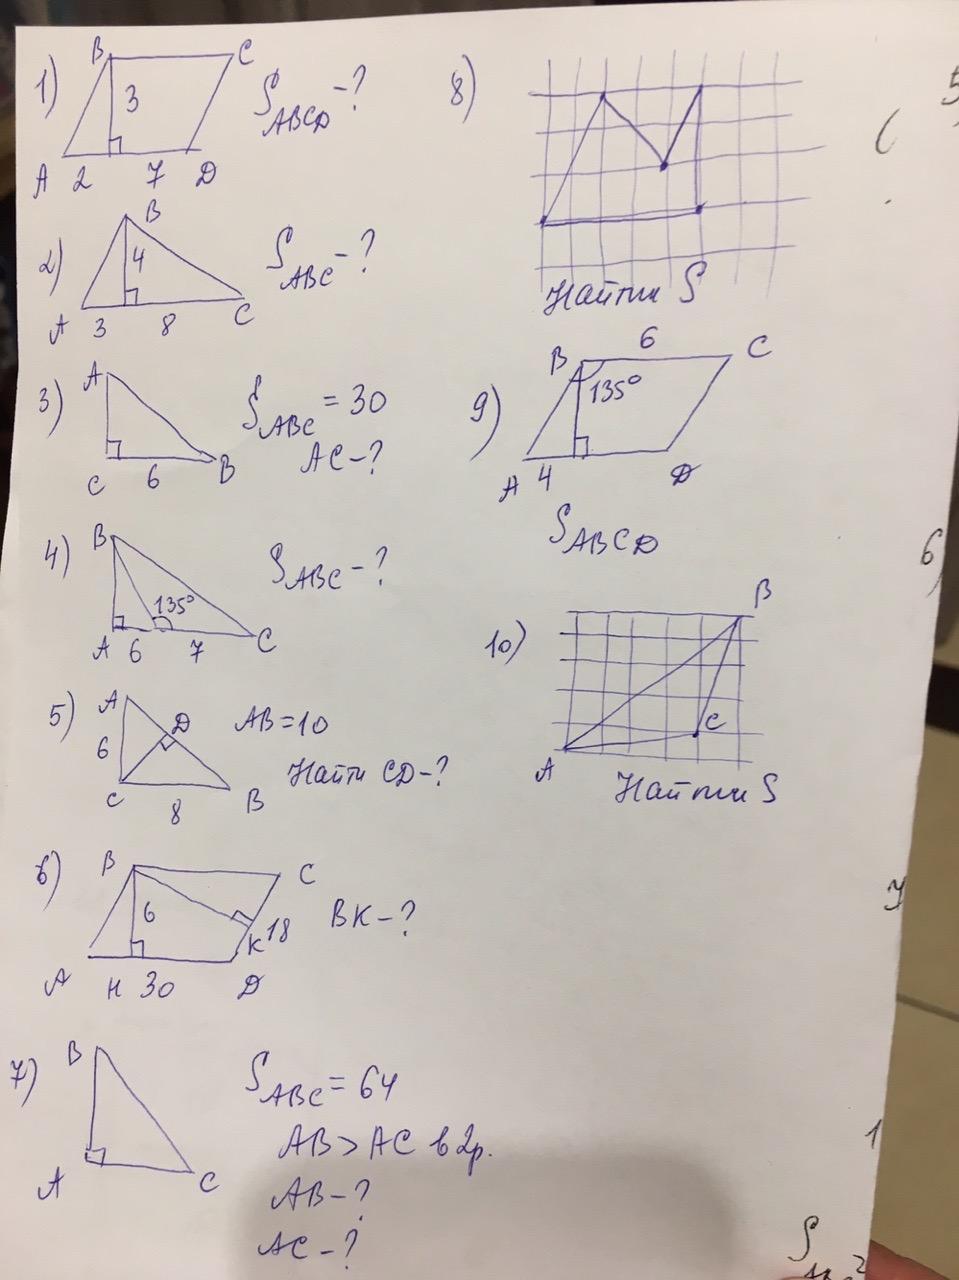 1)
B C
3
A 2 7 D
S ABCD - ?
2)
B
4
A 3 8 C
S ABC - ?
3)
A
C 6 B
S ABC = 30
AC - ?
4)
B
135°
A 6 7 C
S ABC - ?
5)
A
D
6
C 8 B
AB = 10
Найти CD - ?
6)
B C
6
K 18
A H 30 D
BK - ?
7)
B
A C
S ABC = 64
AB > AC в 2р.
AB - ?
AC - ?
8)
Найти S
9)
6
B C
135°
A 4 D
S ABCD
10)
B
C
A
Найти S
6)
1
S